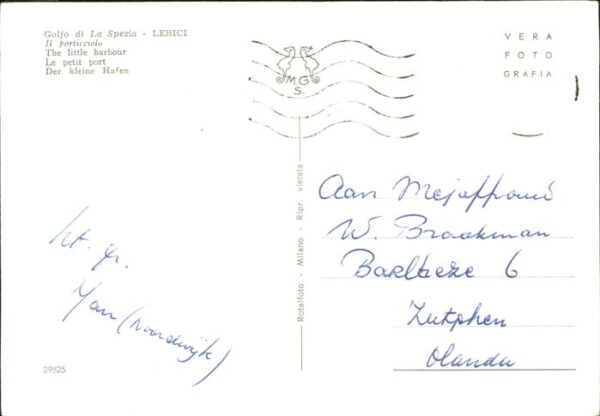 Golfo di La Spezia - LERICI
Il porticciolo
The little harbour
Le petit port
Der kleine Hafen
M. G.
S.
VERA
FOTO
GRAFIA
Rotalfoto - Milano - Ripr. vietata
Aan
W. Brookman
6
Zutphen
Olanda
(Noordwijk)
29825